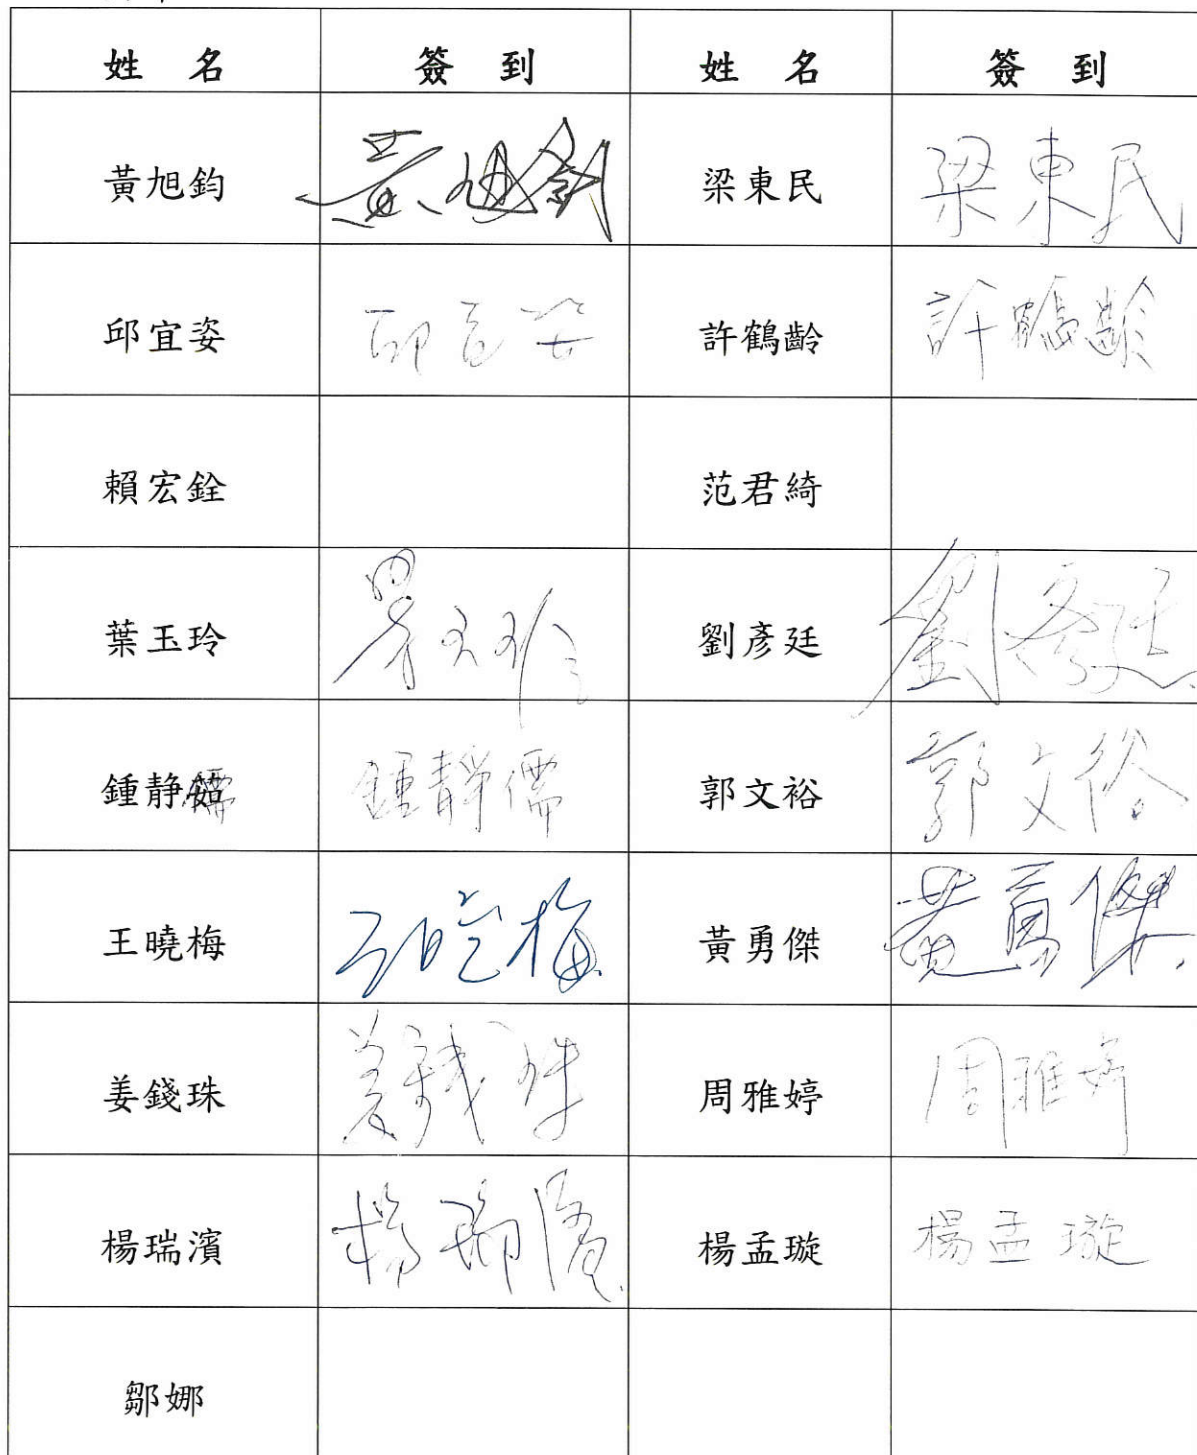 姓 名 簽 到 姓 名 簽 到
黃旭鈞 黃旭鈞 梁東民 梁東民
邱宜姿 邱宜姿 許鶴齡 許鶴齡
賴宏銓 范君綺
葉玉玲 葉玉玲 劉彥廷 劉彥廷
鍾静儒 鍾靜儒 郭文裕 郭文裕
王曉梅 王曉梅 黃勇傑 黃勇傑
姜錢珠 姜錢珠 周雅婷 周雅婷
楊瑞濱 楊瑞濱 楊孟璇 楊孟璇
鄒娜